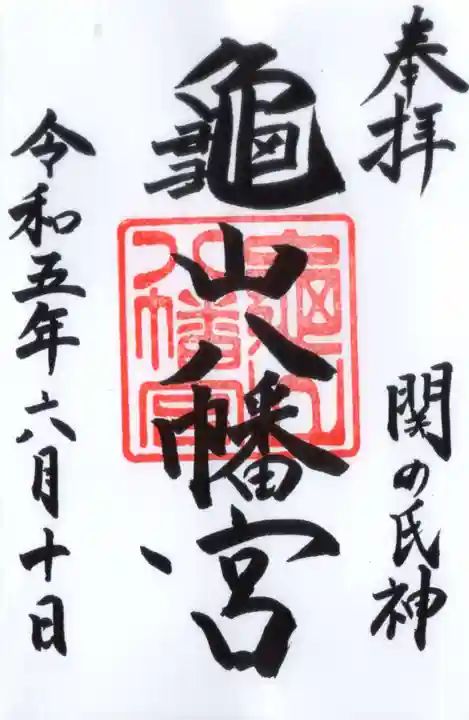 奉拝
関の氏神
龜山八幡宮
龜山
八幡宮
令和五年六月十日